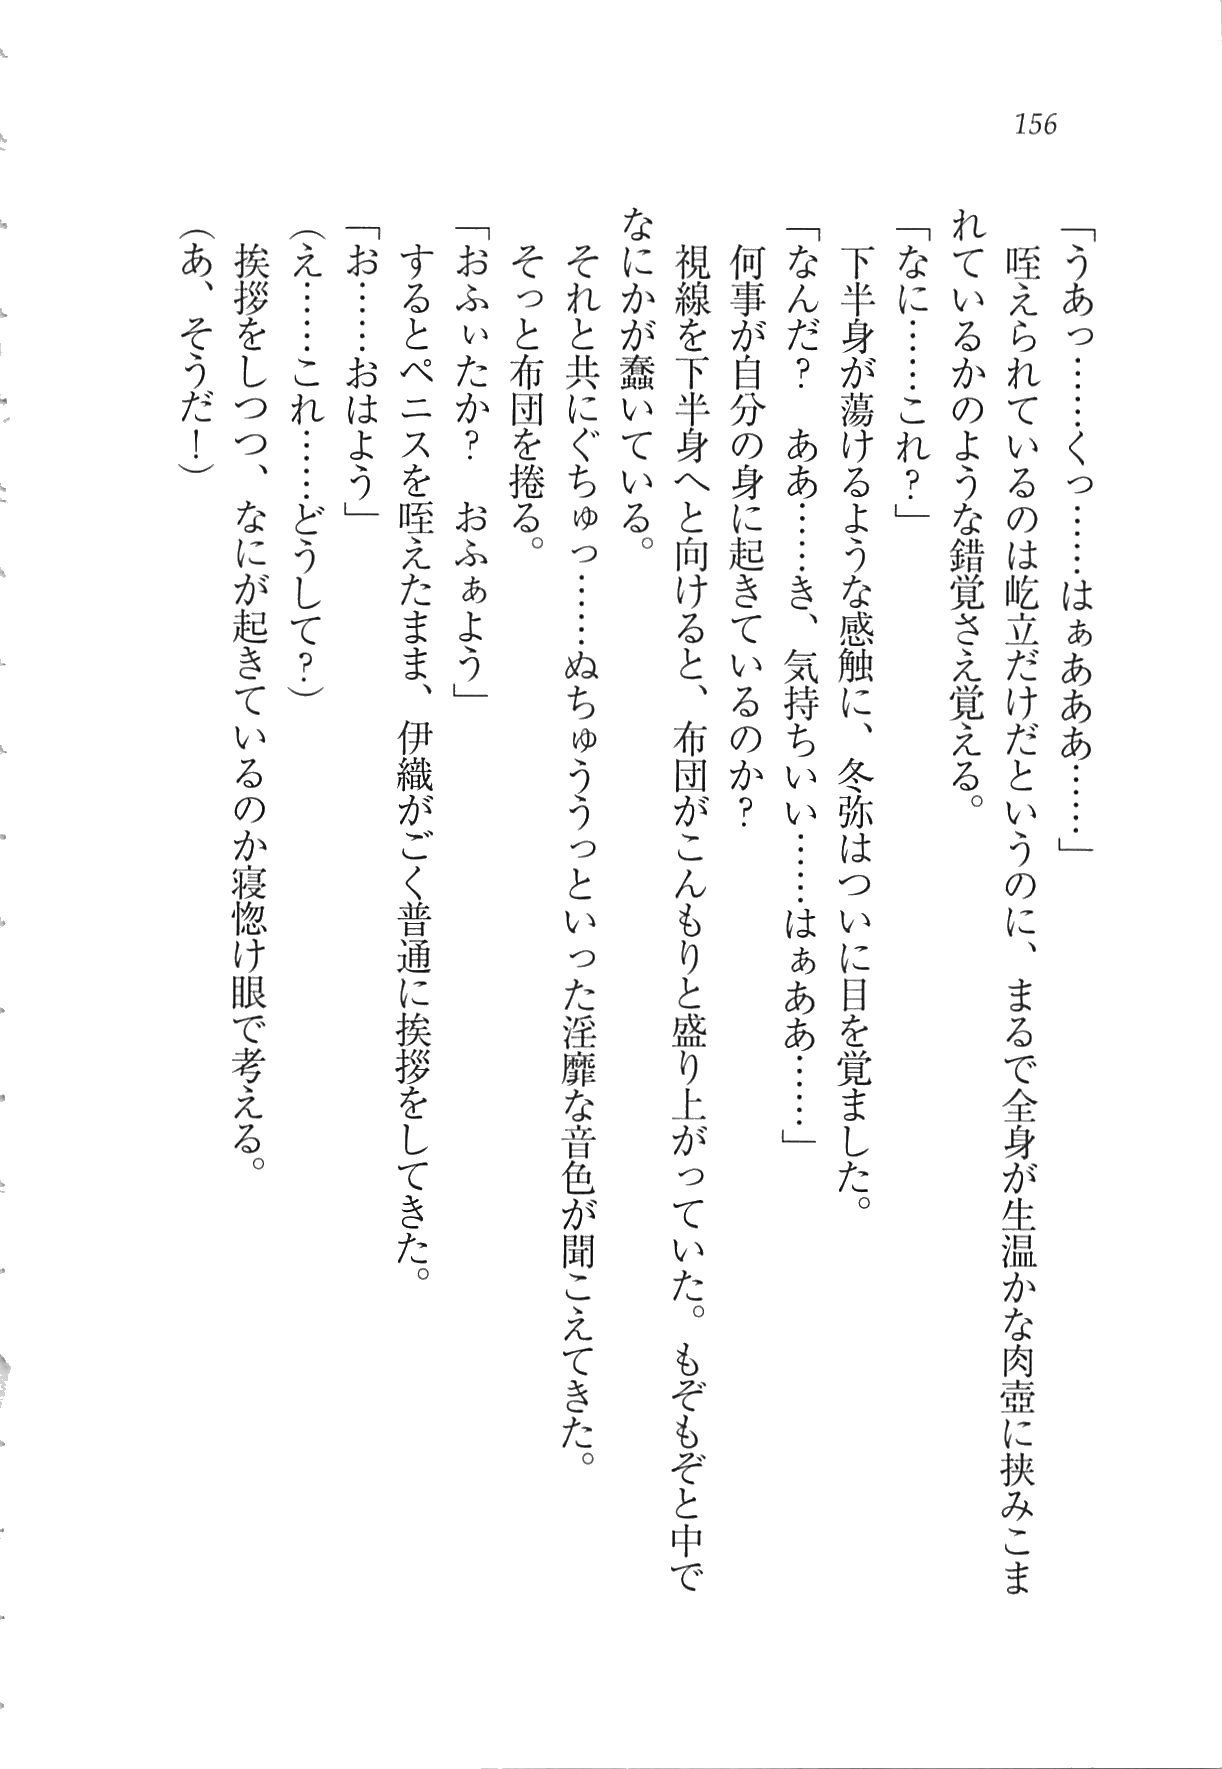 156
「うあっ……くっ……はぁあああ……」
咥えられているのは屹立だけだというのに、まるで全身が生温かな肉壺に挟みこま
れているかのような錯覚さえ覚える。
「なに……これ？」
下半身が蕩けるような感触に、冬弥はついに目を覚ました。
「なんだ？　ああ……き、気持ちいい……はぁああ……」
何事が自分の身に起きているのか？
視線を下半身へと向けると、布団がこんもりと盛り上がっていた。もぞもぞと中で
なにかが蠢いている。
それと共にぐちゅっ……ぬちゅううっといった淫靡な音色が聞こえてきた。
そっと布団を捲る。
「おふぃたか？　おふぁよう」
するとペニスを咥えたまま、伊織がごく普通に挨拶をしてきた。
「お……おはよう」
（え……これ……どうして？）
挨拶をしつつ、なにが起きているのか寝惚け眼で考える。
（あ、そうだ！）